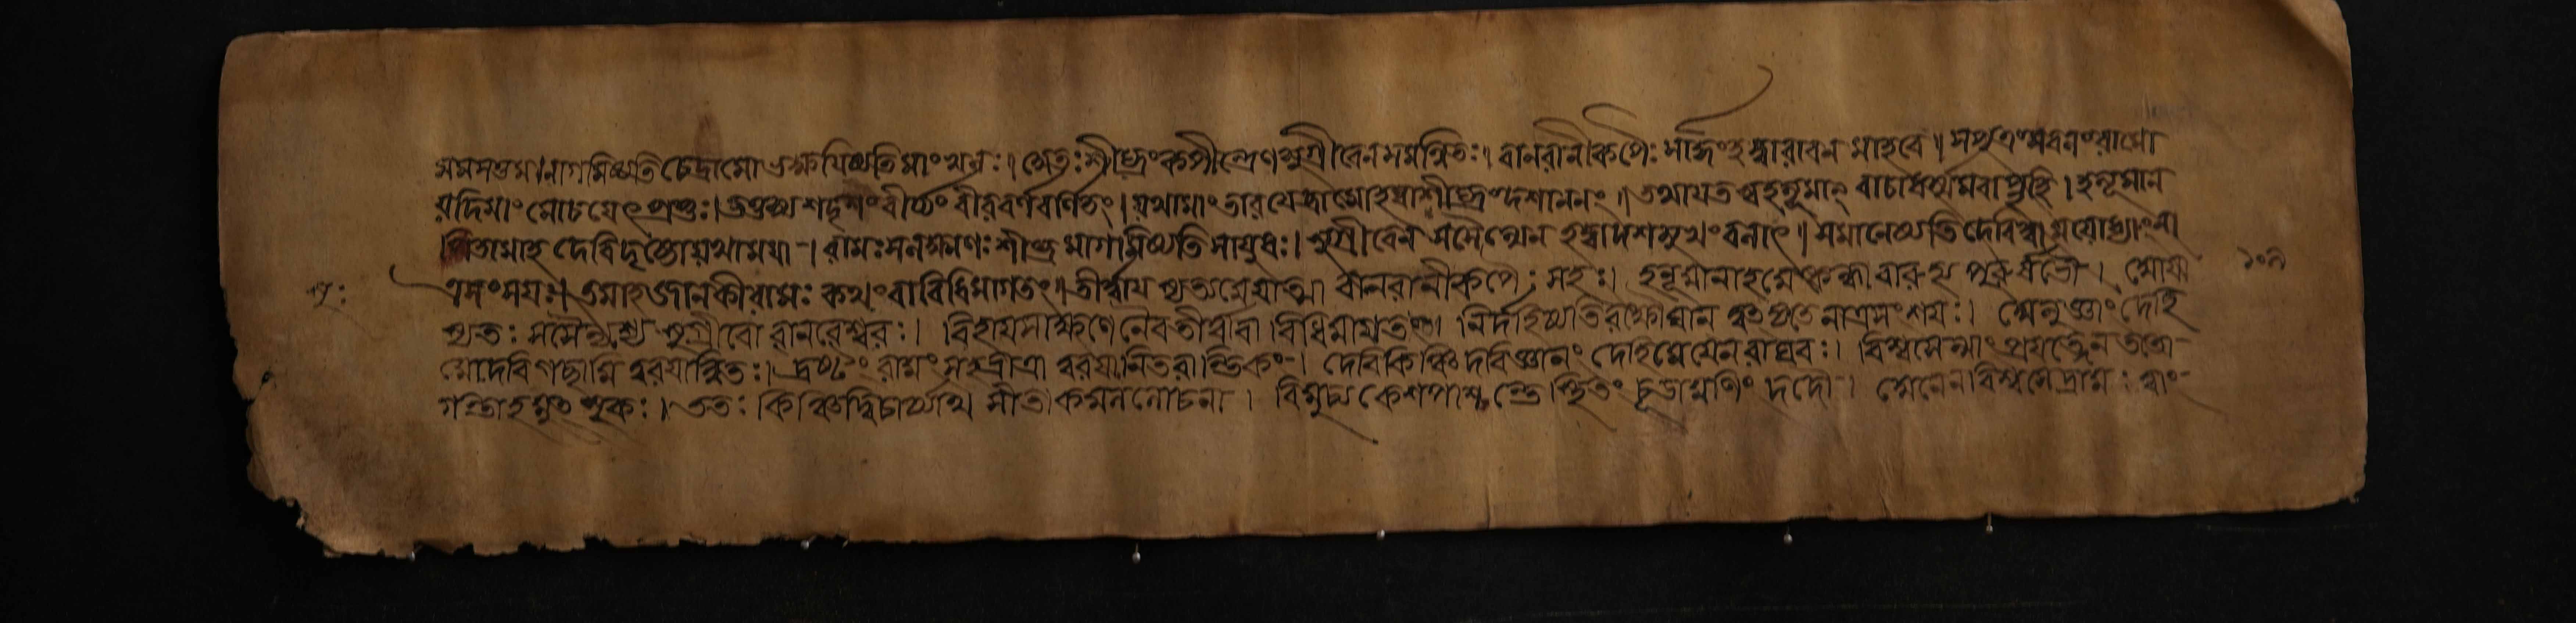 মমসত্তমানাগমিষ্যতি চেদ্রামো ভক্ষযিষ্যতি মাং খলঃ। অতঃ শীঘ্রং কপীন্দ্রেণ সুগ্রীবেন সমন্বিতঃ। বানরানীকপৈঃ সার্দ্ধং হত্বা রাবন মাহবে॥ সপুত্রং সবলং রামো
যদি মাং মোচযেৎ প্রভুঃ। তত্তস্য সদৃশং বীর্য্যং বীর বর্ণয বর্ণিতং। যথা মাং তারযেদ্রামো হত্বা শীঘ্রং দশাননং॥ তথা যতস্ব হনূমান্ বাচা ধর্ম্মমবাপ্নুহি। হনূমান
পি তামাহ দেবি দৃষ্টো যথা মযা। রামঃ সলক্ষ্মণঃ শীঘ্র মাগমিষ্যতি সাযুধঃ। সুগ্রীবেন সসৈন্যেন হত্বা দশমুখং বলাৎ॥ সমানেষ্যতি দেবি ত্বা মযোধ্যাং না
ত্র সংশযঃ। তমাহ জানকী রামঃ কথং বারিধি মাততং॥ তীর্ত্বাযাস্যত্যমেযাত্মা বানরানীকপৈঃ সহঃ। হনূমানাহ মে স্কন্ধা বারুহ্য পুরুষর্ষভৌ। আযা
স্যতঃ সসৈন্যশ্চ সুগ্রীবো বানরেশ্বরঃ। বিহাযসা ক্ষণেনৈব তীর্ত্বা বারিধিমাততং। নির্দহিষ্যতি রক্ষোঘান ত্বৎকৃতে নাত্র সংশযঃ। অনুজ্ঞাং দেহি
মে দেবি গচ্ছামি ত্বরযান্বিতঃ। দ্রষ্টুং রামং সহভ্রাত্রা ত্বরযামি তবান্তিকং। দেবি কিঞ্চি দভিজ্ঞানং দেহি মে যেন রাঘবঃ। বিশ্বসেন্মাং প্রযত্নেন ততো
গন্তাহমুৎসুকঃ। ততঃ কিঞ্চিদ্বিচার্য্যাথ সীতা কমললোচনা। বিমুচ্য কেশপাশান্তে স্থিতং চূডামণিং দদৌ। অনেন বিশ্বসেদ্রামঃ ত্বাং
সুঃ
১০৭